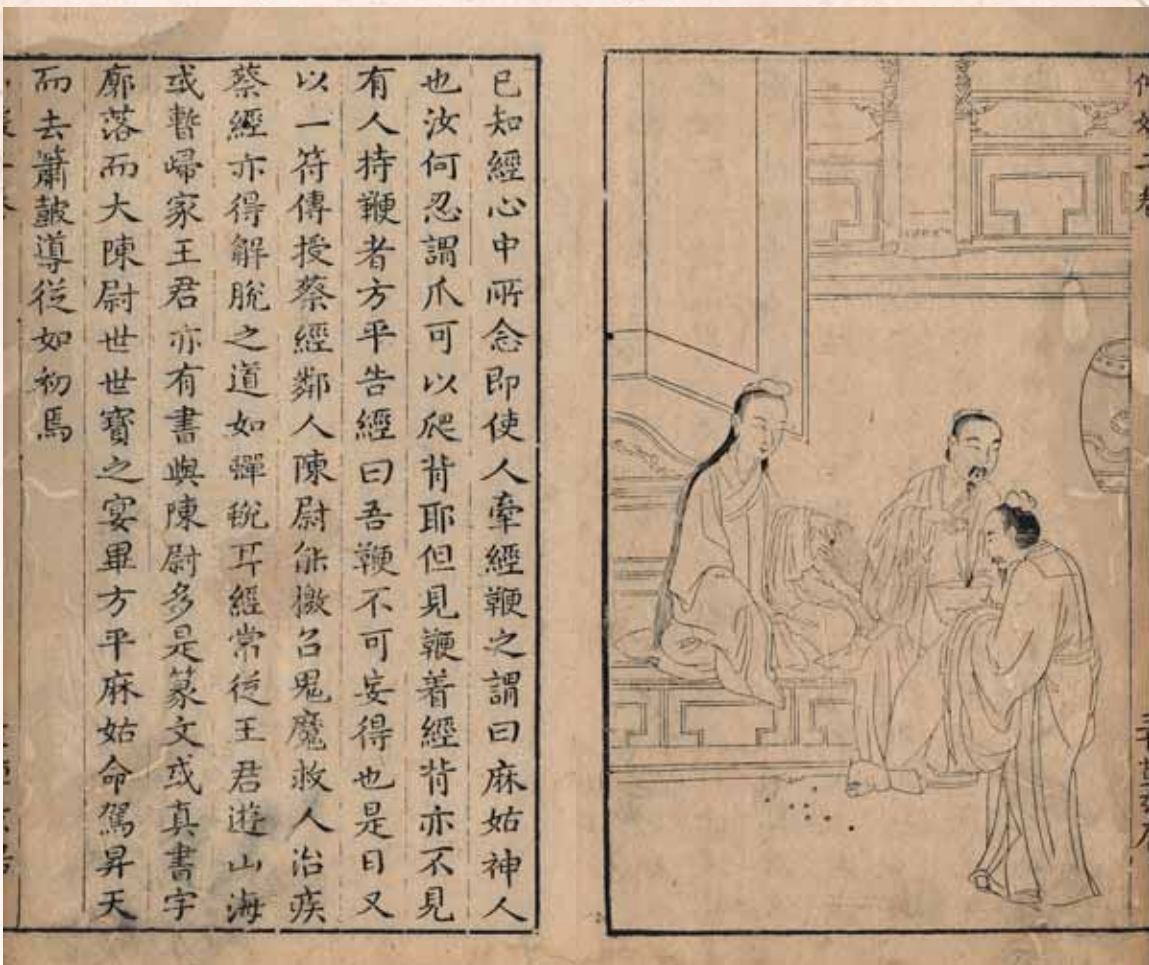 已知經心中所念即使人牽經鞭之謂曰麻姑神人
也汝何忍謂爪可以爬背耶但見鞭着經背亦不見
有人持鞭者方平告經曰吾鞭不可妄得也是日又
以一符傳授蔡經鄰人陳尉能檄召鬼魔救人治疾
蔡經亦得解脫之道如蟬蛻耳經常從王君遊山海
或暫歸家王君亦有書與陳尉多是篆文或真書字
廓落而大陳尉世世寶之宴畢方平麻姑命駕昇天
而去簫鼓導從如初焉